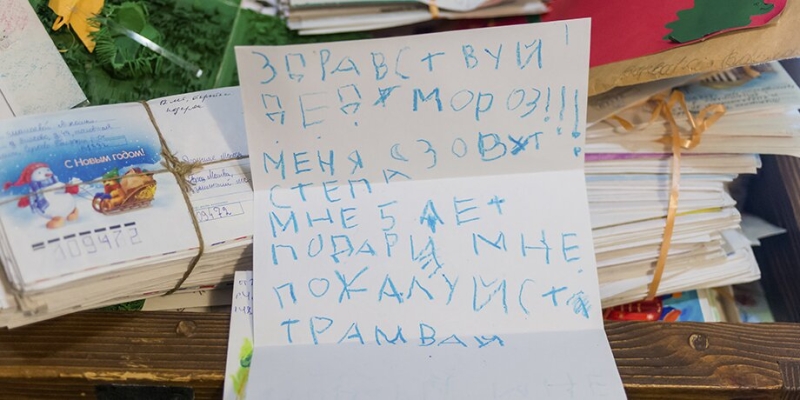 С Новым годом!
109472
ЗДРАВСТВУЙ!
ДЕД МОРОЗ!!!
МЕНЯ ЗОВУТ
СТЕПА
МНЕ 5 ЛЕТ
ПОДАРИ МНЕ
ПОЖАЛУЙСТА
ТРАМВАЙ